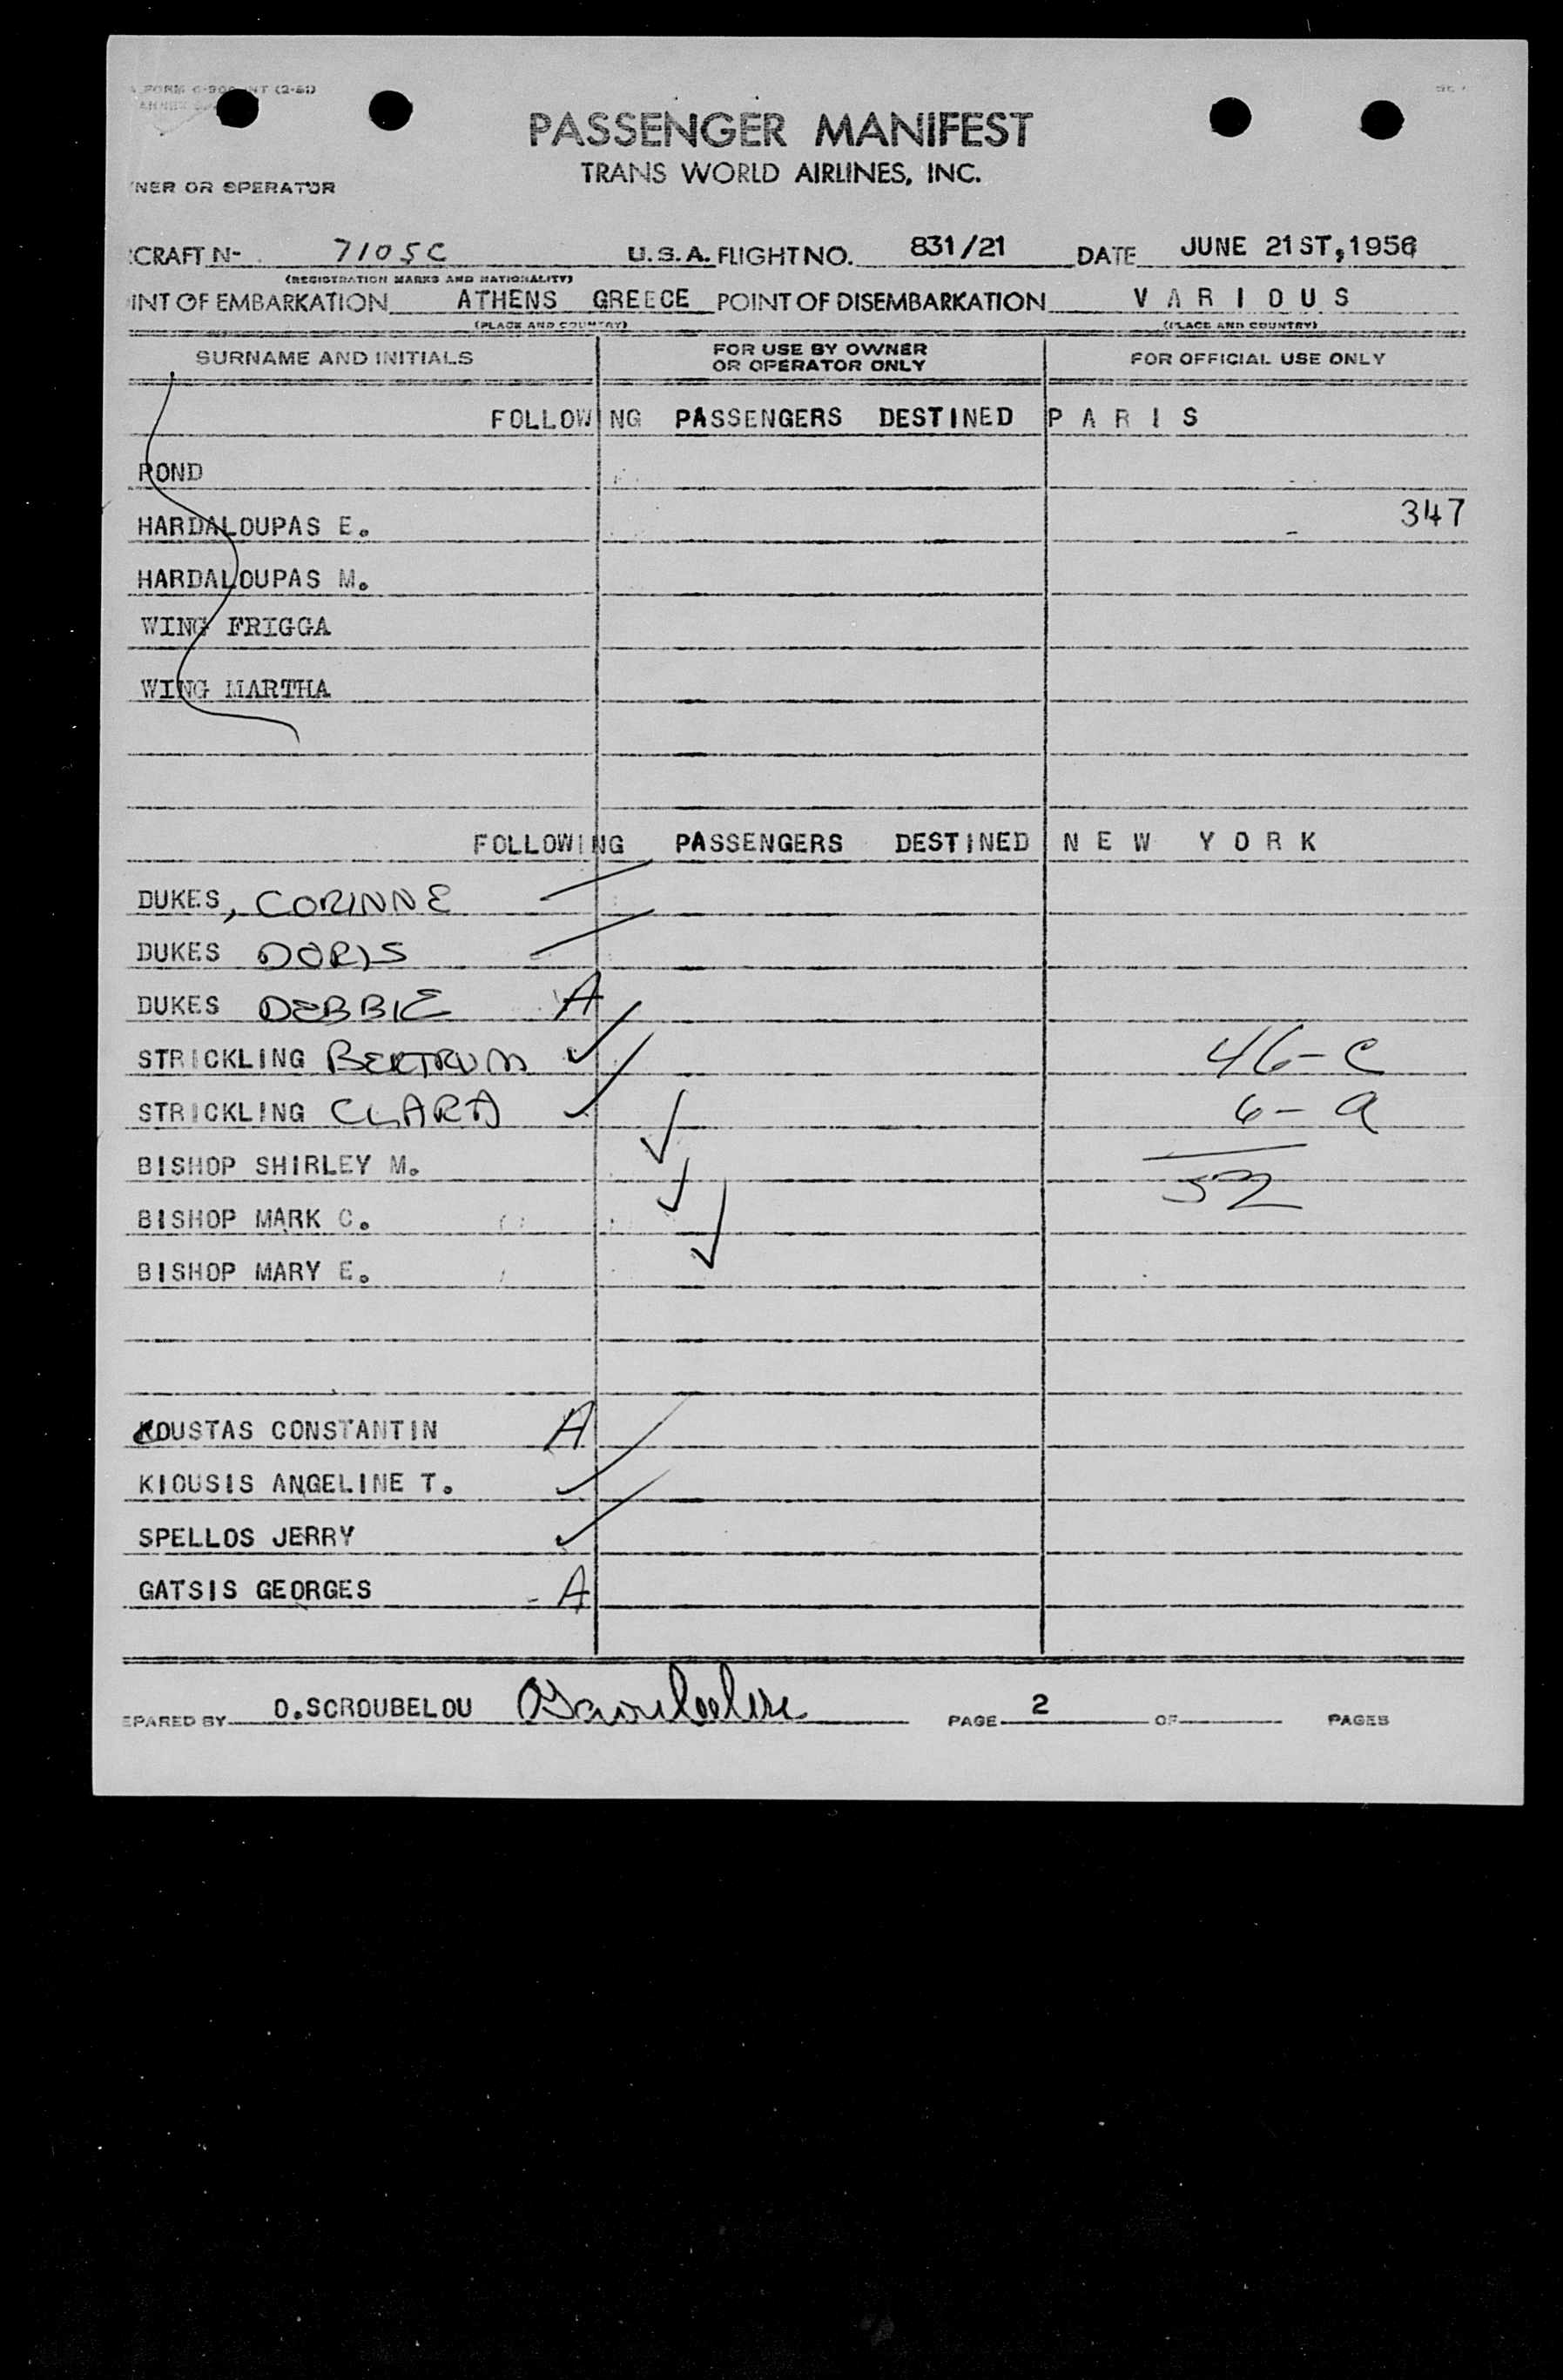 FORM
PASSENGER MANIFEST
TRANS WORLD AIRLINES, INC.
NER OR OPERATOR
CRAFT Nº 7105C U.S.A. FLIGHT NO. 831/21 DATE JUNE 21ST, 1956
(REGISTRATION MARKS AND NATIONALITY)
INT OF EMBARKATION ATHENS GREECE POINT OF DISEMBARKATION VARIOUS
(PLACE AND COUNTRY) (PLACE AND COUNTRY)
SURNAME AND INITIALS FOR USE BY OWNER OR OPERATOR ONLY FOR OFFICIAL USE ONLY
FOLLOWING PASSENGERS DESTINED PARIS
POND
HARDALOUPAS E. 347
HARDALOUPAS M.
WING FRIGGA
WING MARTHA
FOLLOWING PASSENGERS DESTINED NEW YORK
DUKES, CORINNE
DUKES DORIS
DUKES DEBBIE A
STRICKLING BERTRUM 46-C
STRICKLING CLARA 6-a
BISHOP SHIRLEY M. 52
BISHOP MARK C.
BISHOP MARY E.
KOUSTAS CONSTANTIN A
KIOUSIS ANGELINE T.
SPELLOS JERRY
GATSIS GEORGES - A
EPARED BY O.SCROUBELOU PAGE 2 OF PAGES